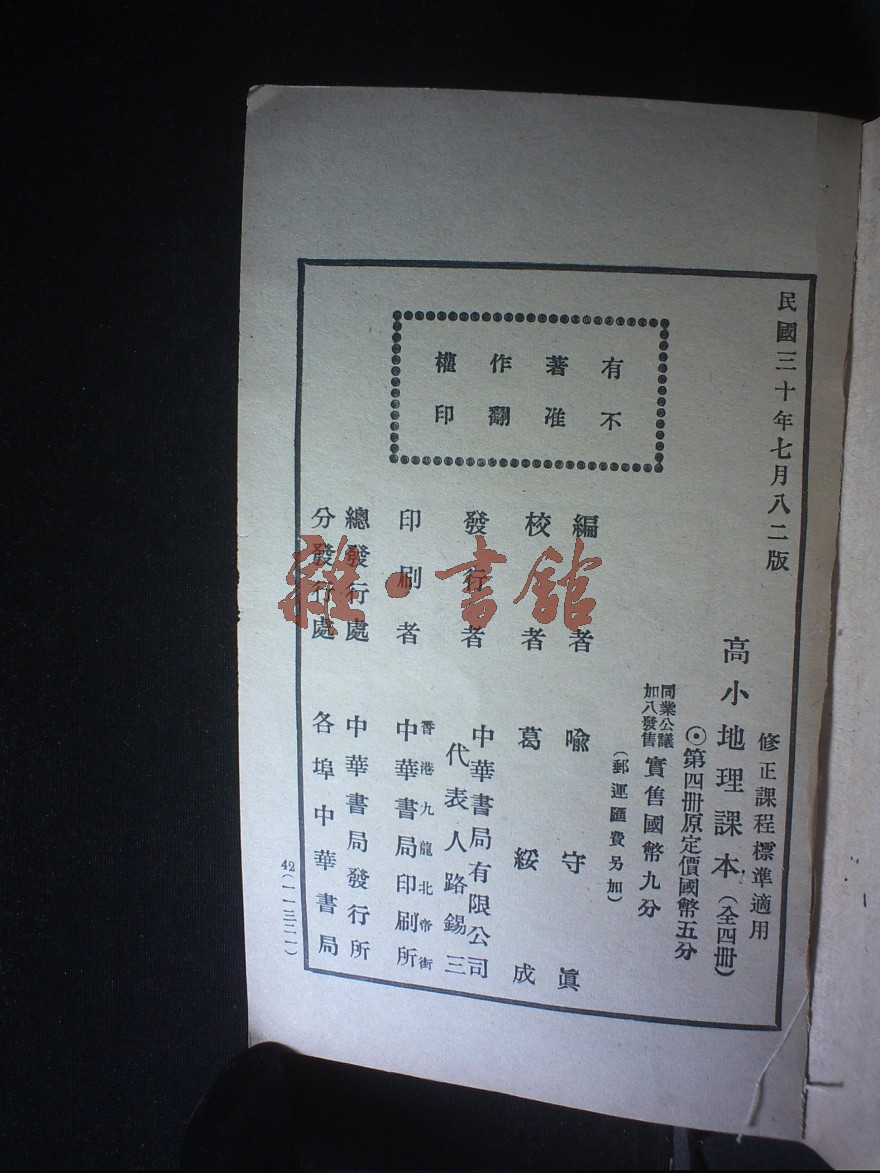 民國三十年七月八二版
修正課程標準適用
高小地理課本（全四冊）
◉第四冊原定價國幣五分
同業公議
加八發售
實售國幣九分
（郵運匯費另加）
有著作權
不准翻印
編者 喩守眞
校者 葛綏成
發行者 中華書局有限公司
代表人路錫三
印刷者 香港九龍北帝街
中華書局印刷所
總發行處 中華書局發行所
分發行處 各埠中華書局
42（一一三二一）
雜·書館